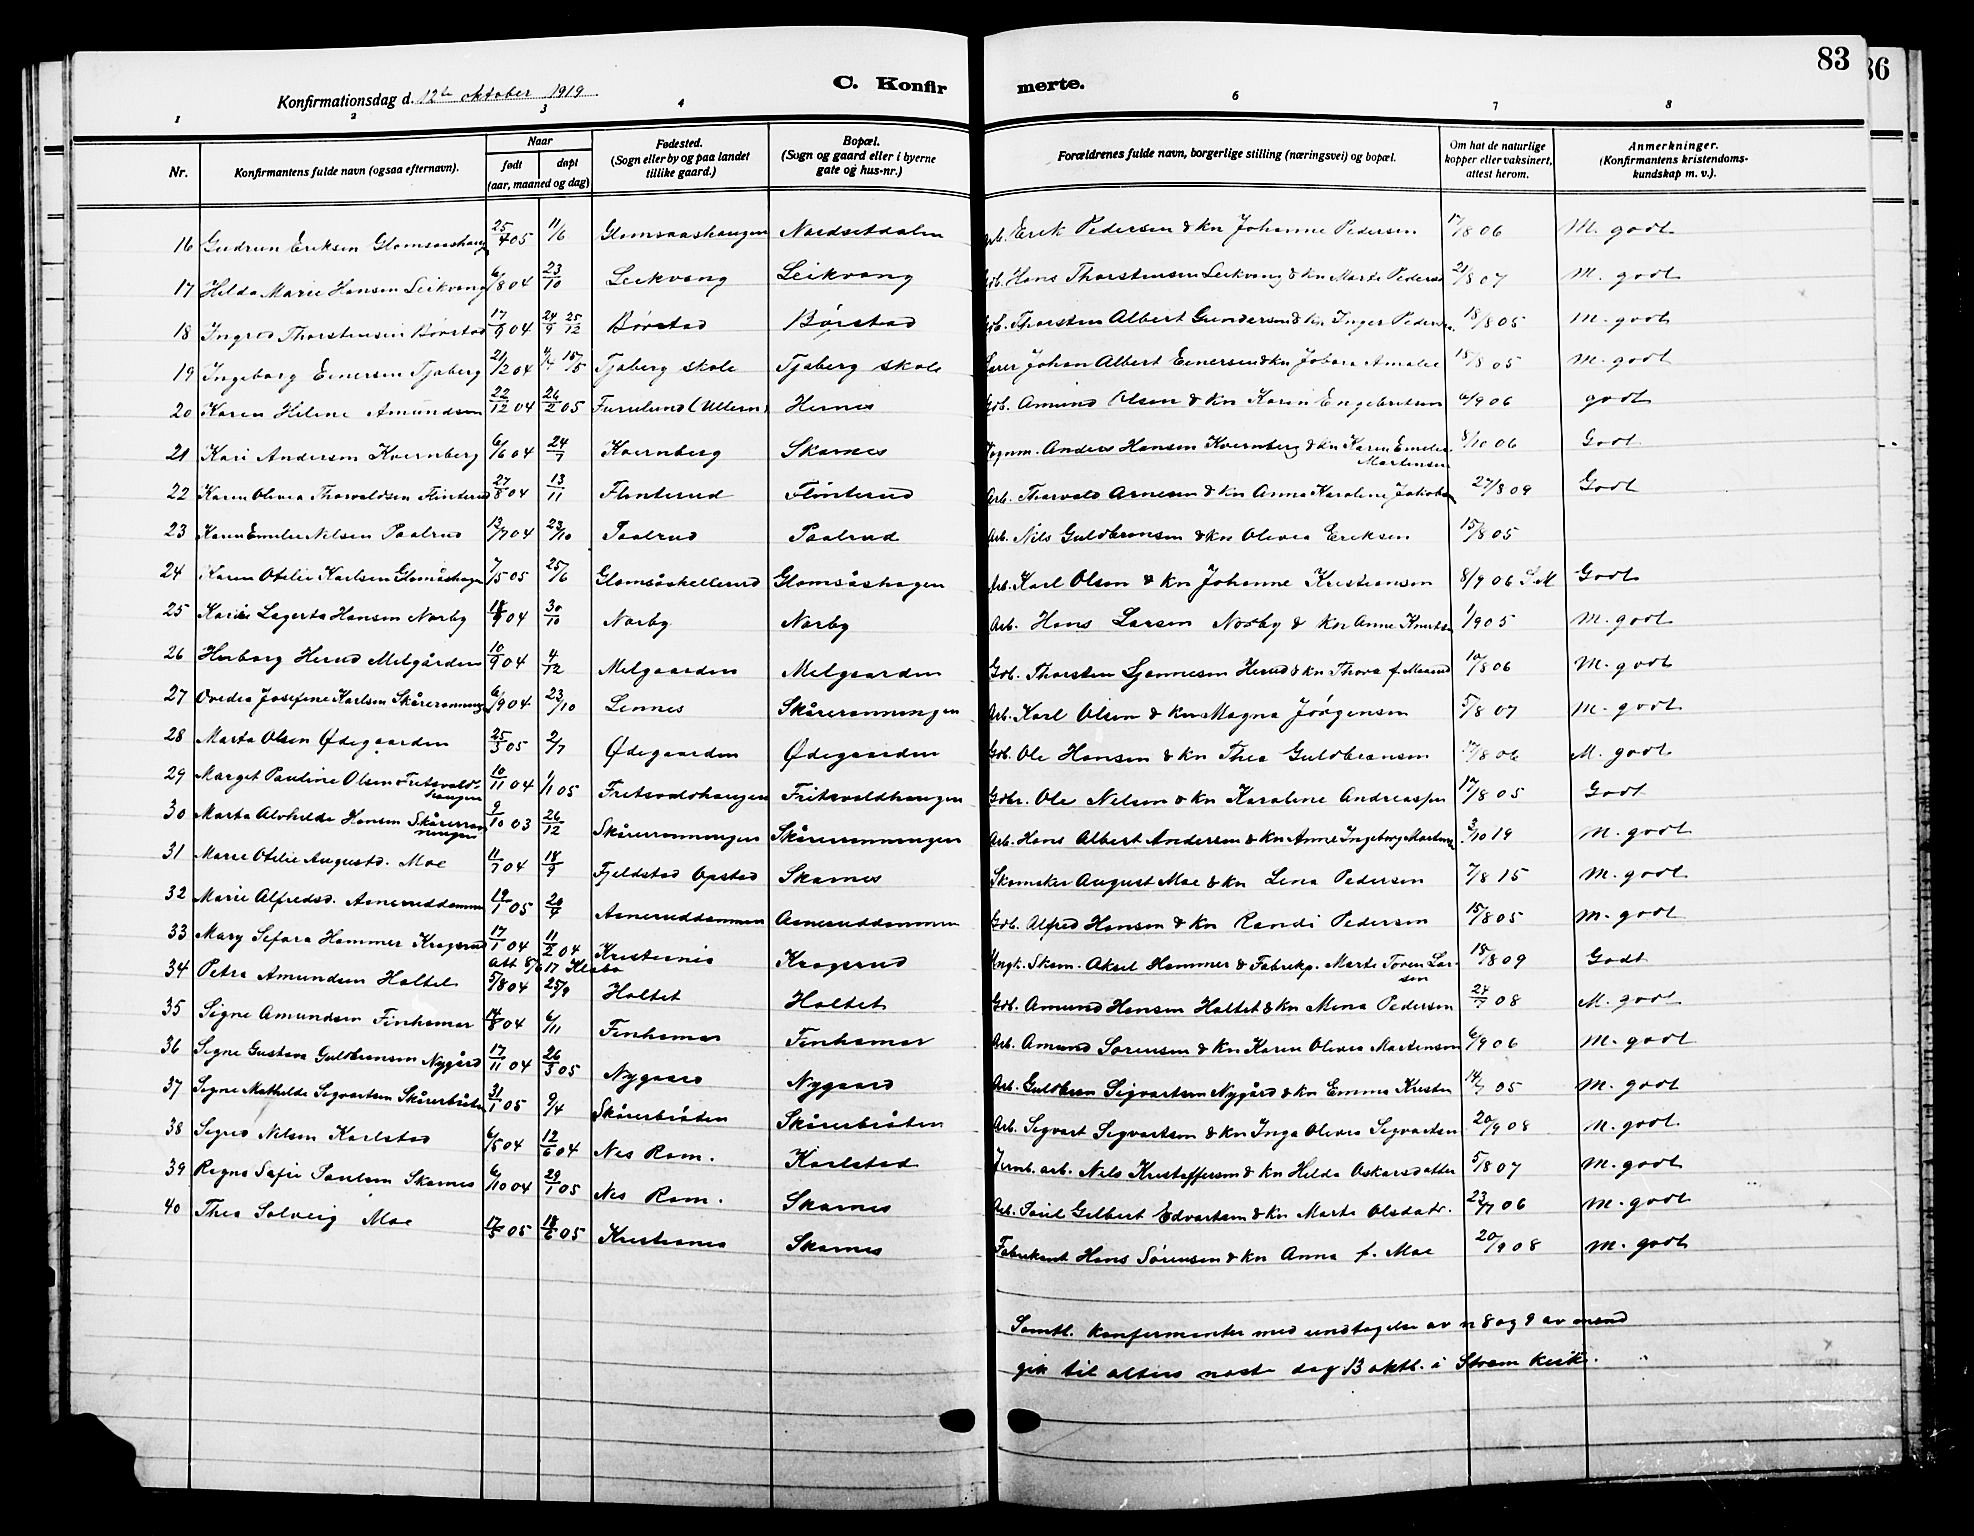 83
86
C. Konfirmerte.
Konfirmationsdag d. 12te oktober 1919
1 2 3 4 6 7 8
Nr.
Konfirmantens fulde navn (ogsaa efternavn).
Naar
født døpt
(aar, maaned og dag)
Fødested.
(Sogn eller by og paa landet
tillike gaard.)
Bopæl.
(Sogn og gaard eller i byerne
gate og hus-nr.)
Forældrenes fulde navn, borgerlige stilling (næringsvei) og bopæl.
Om hat de naturlige
kopper eller vaksinert,
attest herom.
Anmerkninger.
(Konfirmantens kristendoms-
kundskap m. v.).
16 Gudrun Eriksen Glomsaashaug 25/4 05 11/6 Glomsaashaugen Nordsetdalen Arb. Erik Pedersen & kn Johanne Pedersen 17/8 06 M. godt
17 Hilda Marie Hansen Leikvang 6/8 04 23/10 Leikvang Leikvang Gdb. Hans Thorstensen Leikvang & kn Marte Peders 21/8 07 M. godt
18 Ingrid Thorstensen Børstad 17/9 04 25/12 Børstad Børstad Gdb. Thorsten Albert Gundersen & kn Inger Pedersen 18/8 05 M. godt
19 Ingeborg Einersen Tjaberg 21/12 04 15/5 Tjaberg skole Tjaberg skole Lærer Johan Albert Einersen & kn Amalie 18/8 05 M. godt
20 Karen Helene Amundsen 22/12 04 26/2 05 Furulund (Ullern) Hernes Gdb. Amund Olsen & kn Karen Engebretsen 6/9 06 godt
21 Kari Andersen Kvernberg 6/6 04 24/7 Kvernberg Skarnes Vognm. Anders Hansen Kvernberg & kn Karen Emelie
Martensen 8/10 06 Godt
22 Karen Olivia Thorvaldsen Flinterud 27/8 04 13/11 Flinterud Flinterud Arb. Thorvald Arnesen & kn Anna Karoline Jakobsen 27/8 09 Godt
23 Karen Emilie Nilsen Paalrud 13/7 04 23/10 Paalrud Paalrud Arb. Nils Guldbransen & kn Olivia Eriksen 15/8 05
24 Karen Otilie Karlsen Glomsåshagen 7/5 05 25/6 Glomsåskellerud Glomsåshagen Arb. Karl Olsen & kn Johanne Kristiansen 8/9 06 S M Godt
25 Karin Lagerta Hansen Norby 18/9 04 30/10 Norby Norby Arb. Hans Larsen Norby & kn Anne Knutsen 1/9 05 M. godt
26 Herborg Herud Melgården 10/9 04 4/12 Melgaarden Melgaarden Gdb. Thorsten Herud & kn Thora f. Maarud 10/8 06 M. godt
27 Ovedia Josefine Karlsen Skårerønningen 6/9 04 23/10 Lennes Skårerønningen Arb. Karl Olsen & kn Magna Jørgensen 5/8 07 M. godt
28 Marta Olsen Ødegaarden 25/5 05 2/7 Ødegaarden Ødegaarden Gdb. Ole Hansen & kn Thea Guldbransen 17/8 06 M. godt
29 Marget Pauline Olsen Fritsvold-
haugen 10/11 04 1/1 05 Fritsvoldhaugen Fritsvoldhaugen Gdbr. Ole Nilsen & kn Karoline Andreassen 17/8 05 Godt
30 Marta Alvhilde Hansen Skårerrøn
ningen 9/10 03 26/12 Skårerrønningen Skårerrønningen Arb. Hans Albert Andersen & kn Anne Ingeborg Martinsen 3/10 19 M. godt
31 Marie Otilie Augustd. Moe 11/7 04 18/9 Fjeldstad Opstad Skarnes Skomaker August Moe & kn Lina Pedersen 7/8 15 M. godt
32 Marie Alfredsd. Asneruddammen 19/1 05 20/4 Asneruddammen Asneruddammen Gdb. Alfred Hansen & kn Randi Pedersen 15/8 05 M. godt
33 Mary Sefora Hammer Krogsrud 17/1 04 11/2 04 Kristiania Krogsrud Ungk. Skom. Aksel Hammer & Fabrikp. Marte Toren Lar-
sen 18/8 09 Godt
34 Petra Amundsen Holtet 5/8 04 25/9 Holtet Holtet Gdb. Amund Hansen Holtet & kn Mina Pedersen 24/7 08 M. godt
35 Signe Amundsen Finhamar 14/8 04 6/11 Finhamar Finhamar Arb. Amund Sørensen & kn Karen Olivia Martensen 6/9 06 M. godt
36 Signe Gustava Guldbransen Nygård 17/11 04 26/3 05 Nygaard Nygaard Arb. Guldbran Sigvartsen Nygård & kn Emma Kristen 14/7 05 M. godt
37 Signe Mathilde Sigvartsen Skårerbråten 31/1 05 9/4 Skårerbråten Skårerbråten Arb. Sigvart Sigvartsen & kn Inga Olivia Sigvartsen 20/9 08 M. godt
38 Sigrid Nilsen Karlstad 6/5 04 12/6 04 Nes Rom. Karlstad Jernb. arb. Nils Kristoffersen & kn Hilda Oskarsdatter 5/8 07 M. godt
39 Ragna Sofie Paulsen Skarnes 6/10 04 29/1 05 Nes Rom. Skarnes Arb. Paul Gilbert Edvartsen & kn Marte Olsdatr. 23/7 06 M. godt
40 Thea Solveig Moe 17/5 05 18/6 05 Kristiania Skarnes Fabrikant Hans Sørensen & kn Anna f. Moe 20/9 08 M. godt
Samtl. konfirmanter med undtagelse av n 8 og 9 av mænd
gik til alters næste dag 13 oktb. i Strøm kirke.